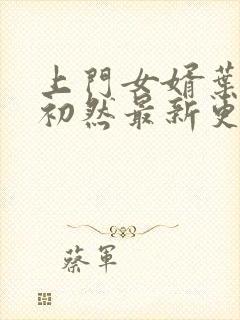 上門女婿葉
初然最新更
蔡軍